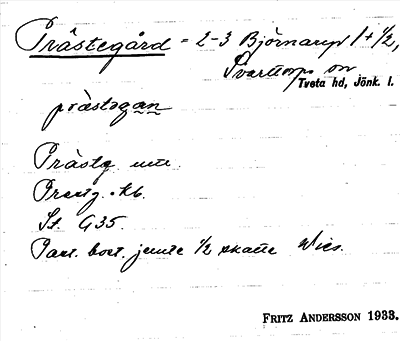 Prästegård = 2-3 Björnarup 1+1/2,
Svarttorps sn
Tveta hd, Jönk. l.
prästəgan
Prästg. utt.
Prestg. kb.
St. G35.
Past. bost. jemte 1/2 skatte Wies.
FRITZ ANDERSSON 1933.